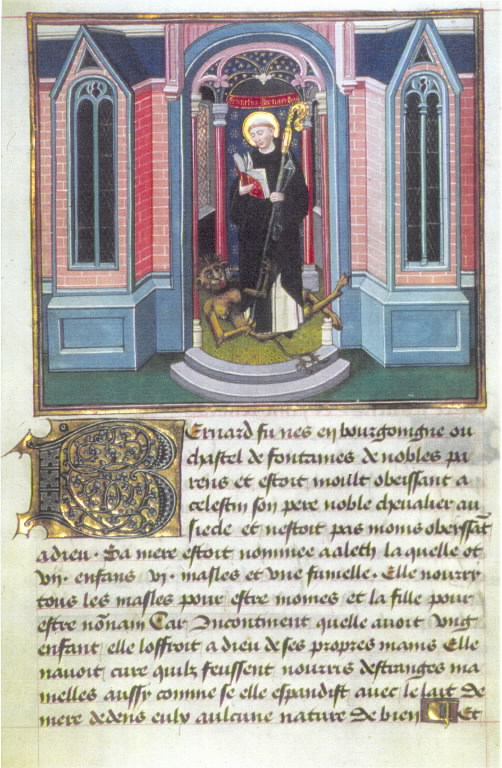 Sanctus Bernardus
Bernard fu nes en bourgoingne ou
chastel de fontaines de nobles pa
rens et estoit moult obeissant a
celestin son pere noble chevalier au
siecle et nestoit pas moins obeissāt
a dieu . Sa mere estoit nommee aaleth la quelle ot
vij . enfans vi . masles et vne fumelle . Elle nourry
tous les masles pour estre moines et la fille pour
estre nōnain Car Incontinent quelle auoit vng
enfant elle loffroit a dieu de ses propres mains Elle
nauoit cure quilz feussent nourris destranges ma
melles aussy comme se elle espandist auec le lait de
mere dedens eulx aulcune nature de bien Et